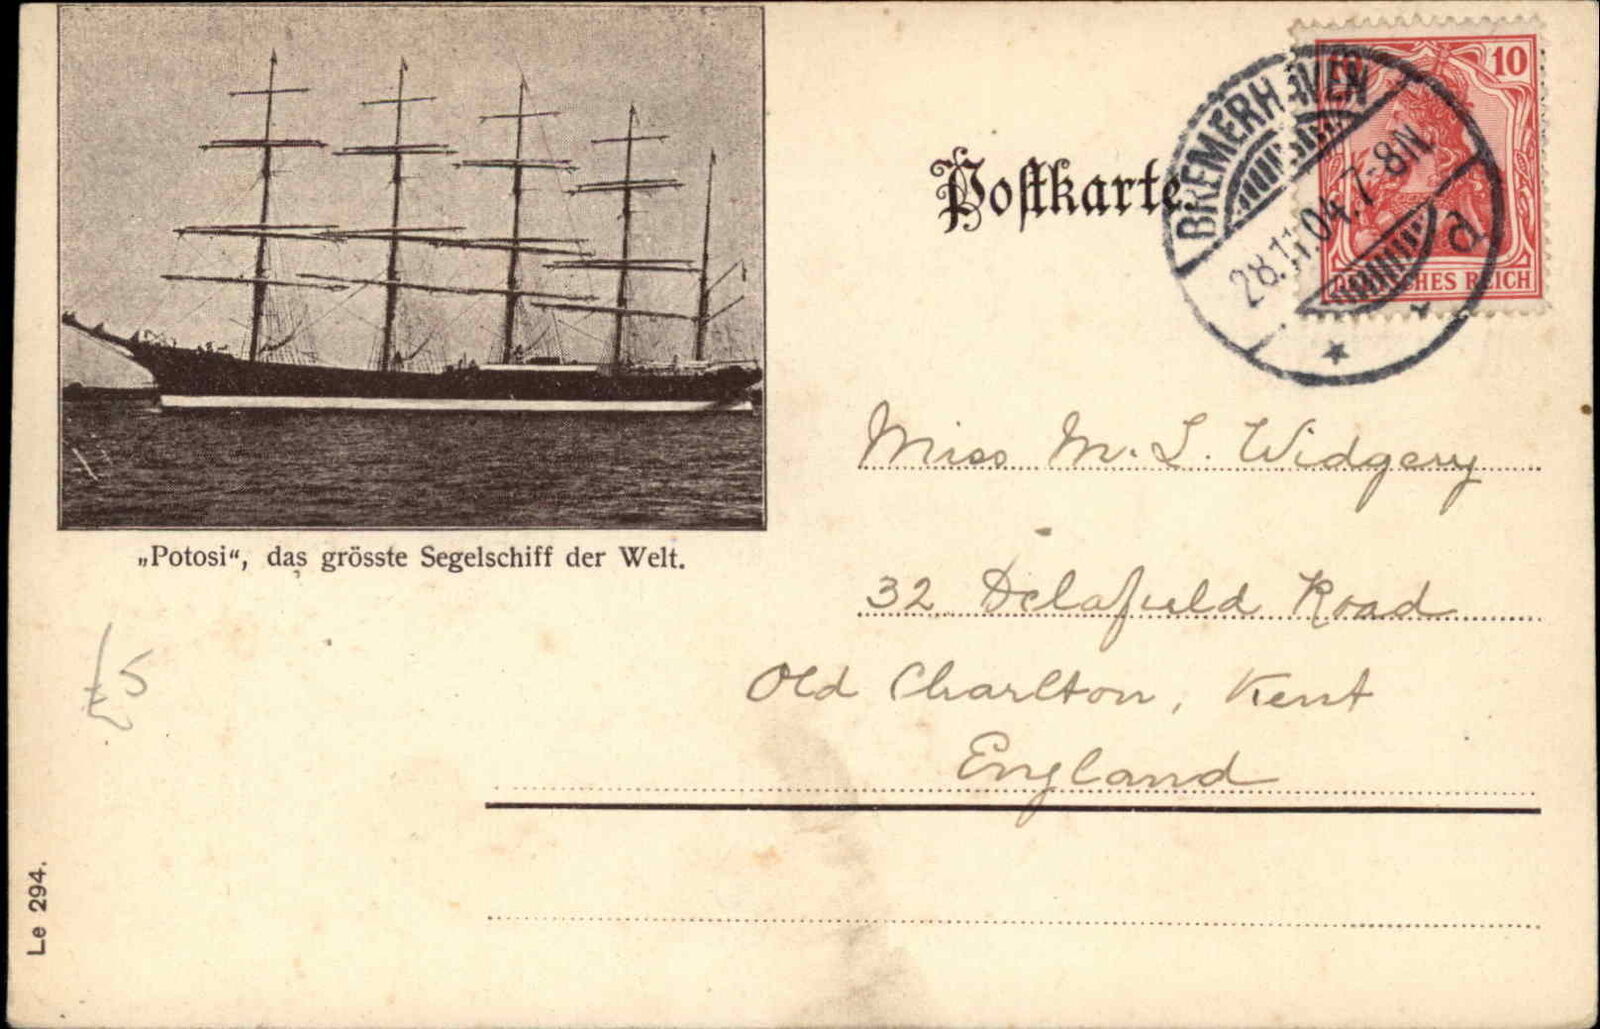 „Potosi“, das grösste Segelschiff der Welt.
Postkarte.
BREMERHAVEN
28.11.04.7-8N.
d
10
DEUTSCHES REICH
Miss M. L. Widgery
32 Delafield Road
Old Charlton, Kent
England
£5
Le 294.